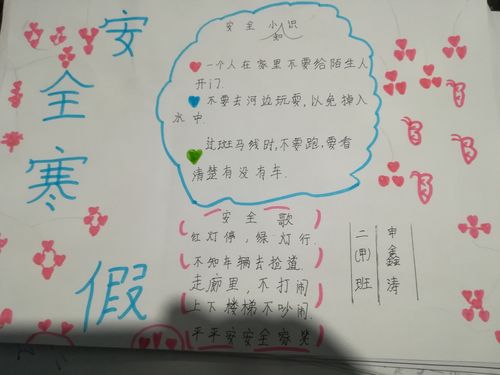 安
全
寒
假
安全小知识
一个人在家里不要给陌生人
开门.
不要去河边玩耍,以免掉入
水中.
过斑马线时,不要跑,要看
清楚有没有车.
安全歌
红灯停,绿灯行.
不知车辆去抢道.
走廊里,不打闹
上下楼梯不吵闹.
平平安安全家笑
二(甲)班
申鑫涛